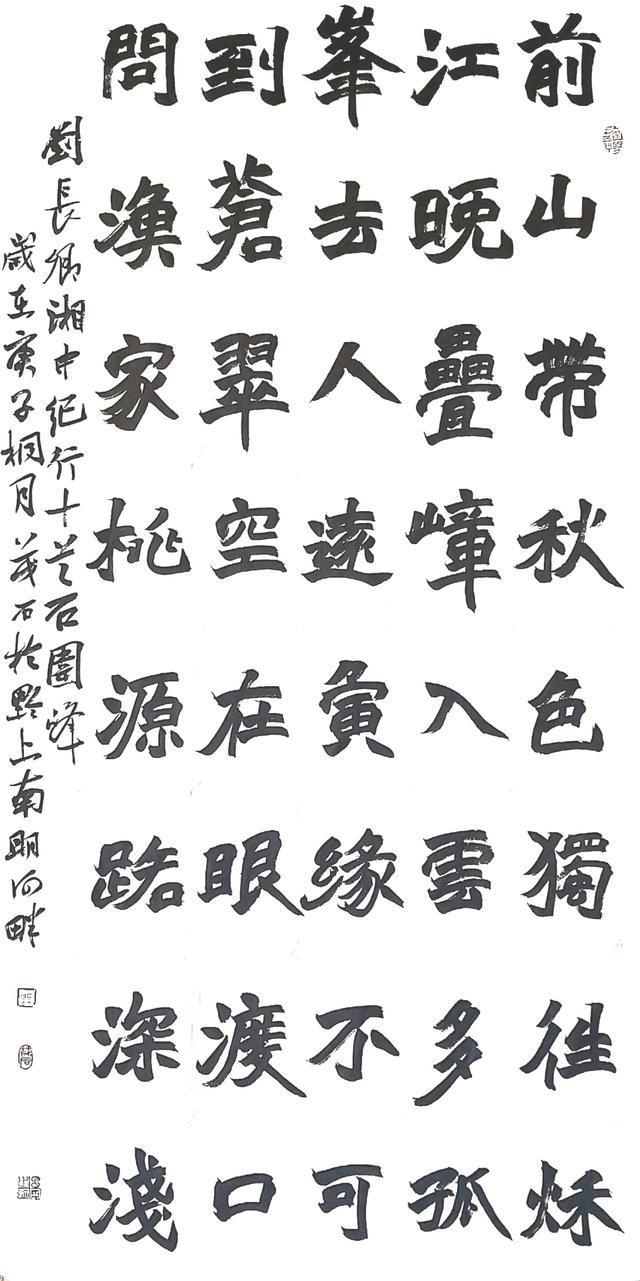 前山帶秋色獨徃秌
江晚疊嶂入雲多孤
峯去人遠寅緣不可
到蒼翠空在眼渡口
問漁家桃源路深淺
劉長卿湘中紀行十首石圍峰
歲在庚子桐月茂石於黔上南明河畔